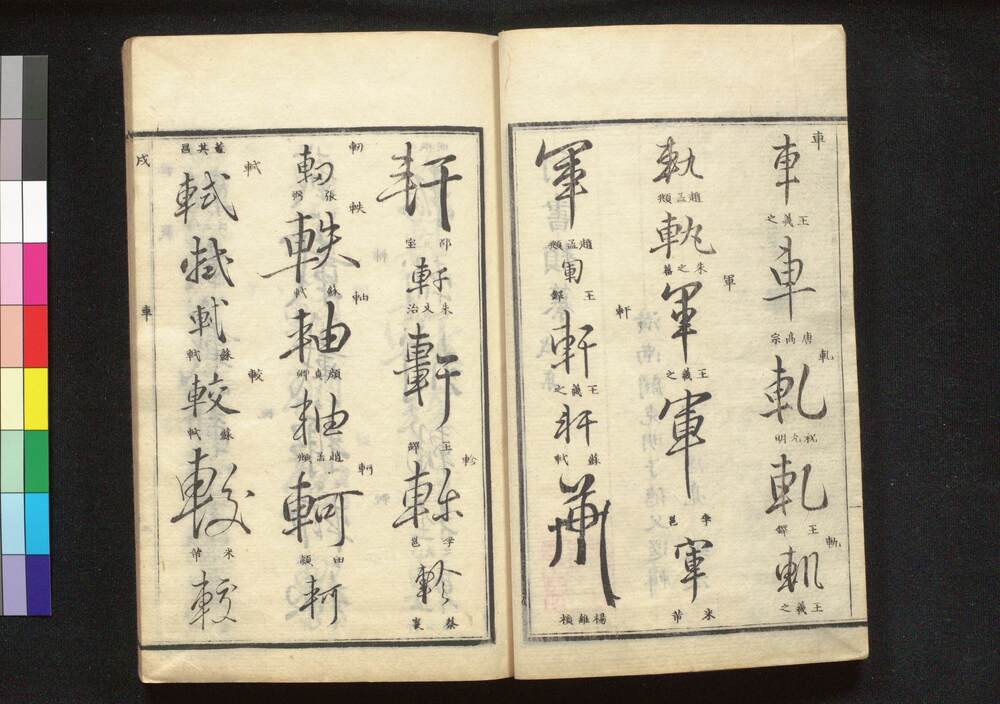 車
車
王羲之
車
唐高宗
軋
軋
祝允明
軋
王鐸
軌
軌
王羲之
軌
趙孟頫
軌
朱之蕃
軍
軍
王羲之
軍
李邕
軍
米芾
軍
趙孟頫
軍
王鐸
軒
軒
王羲之
軒
蘇軾
軒
楊維楨
軒
邵室
軒
朱文治
軒
王鐸
軫
軫
李邕
軫
蔡襄
軔
軔
張弼
軼
軼
蘇軾
軸
軸
顏真卿
軸
趙孟頫
軻
軻
田頴
軻
董其昌
軾
軾
軾
軾
蘇軾
較
較
蘇軾
較
米芾
較
戌
車